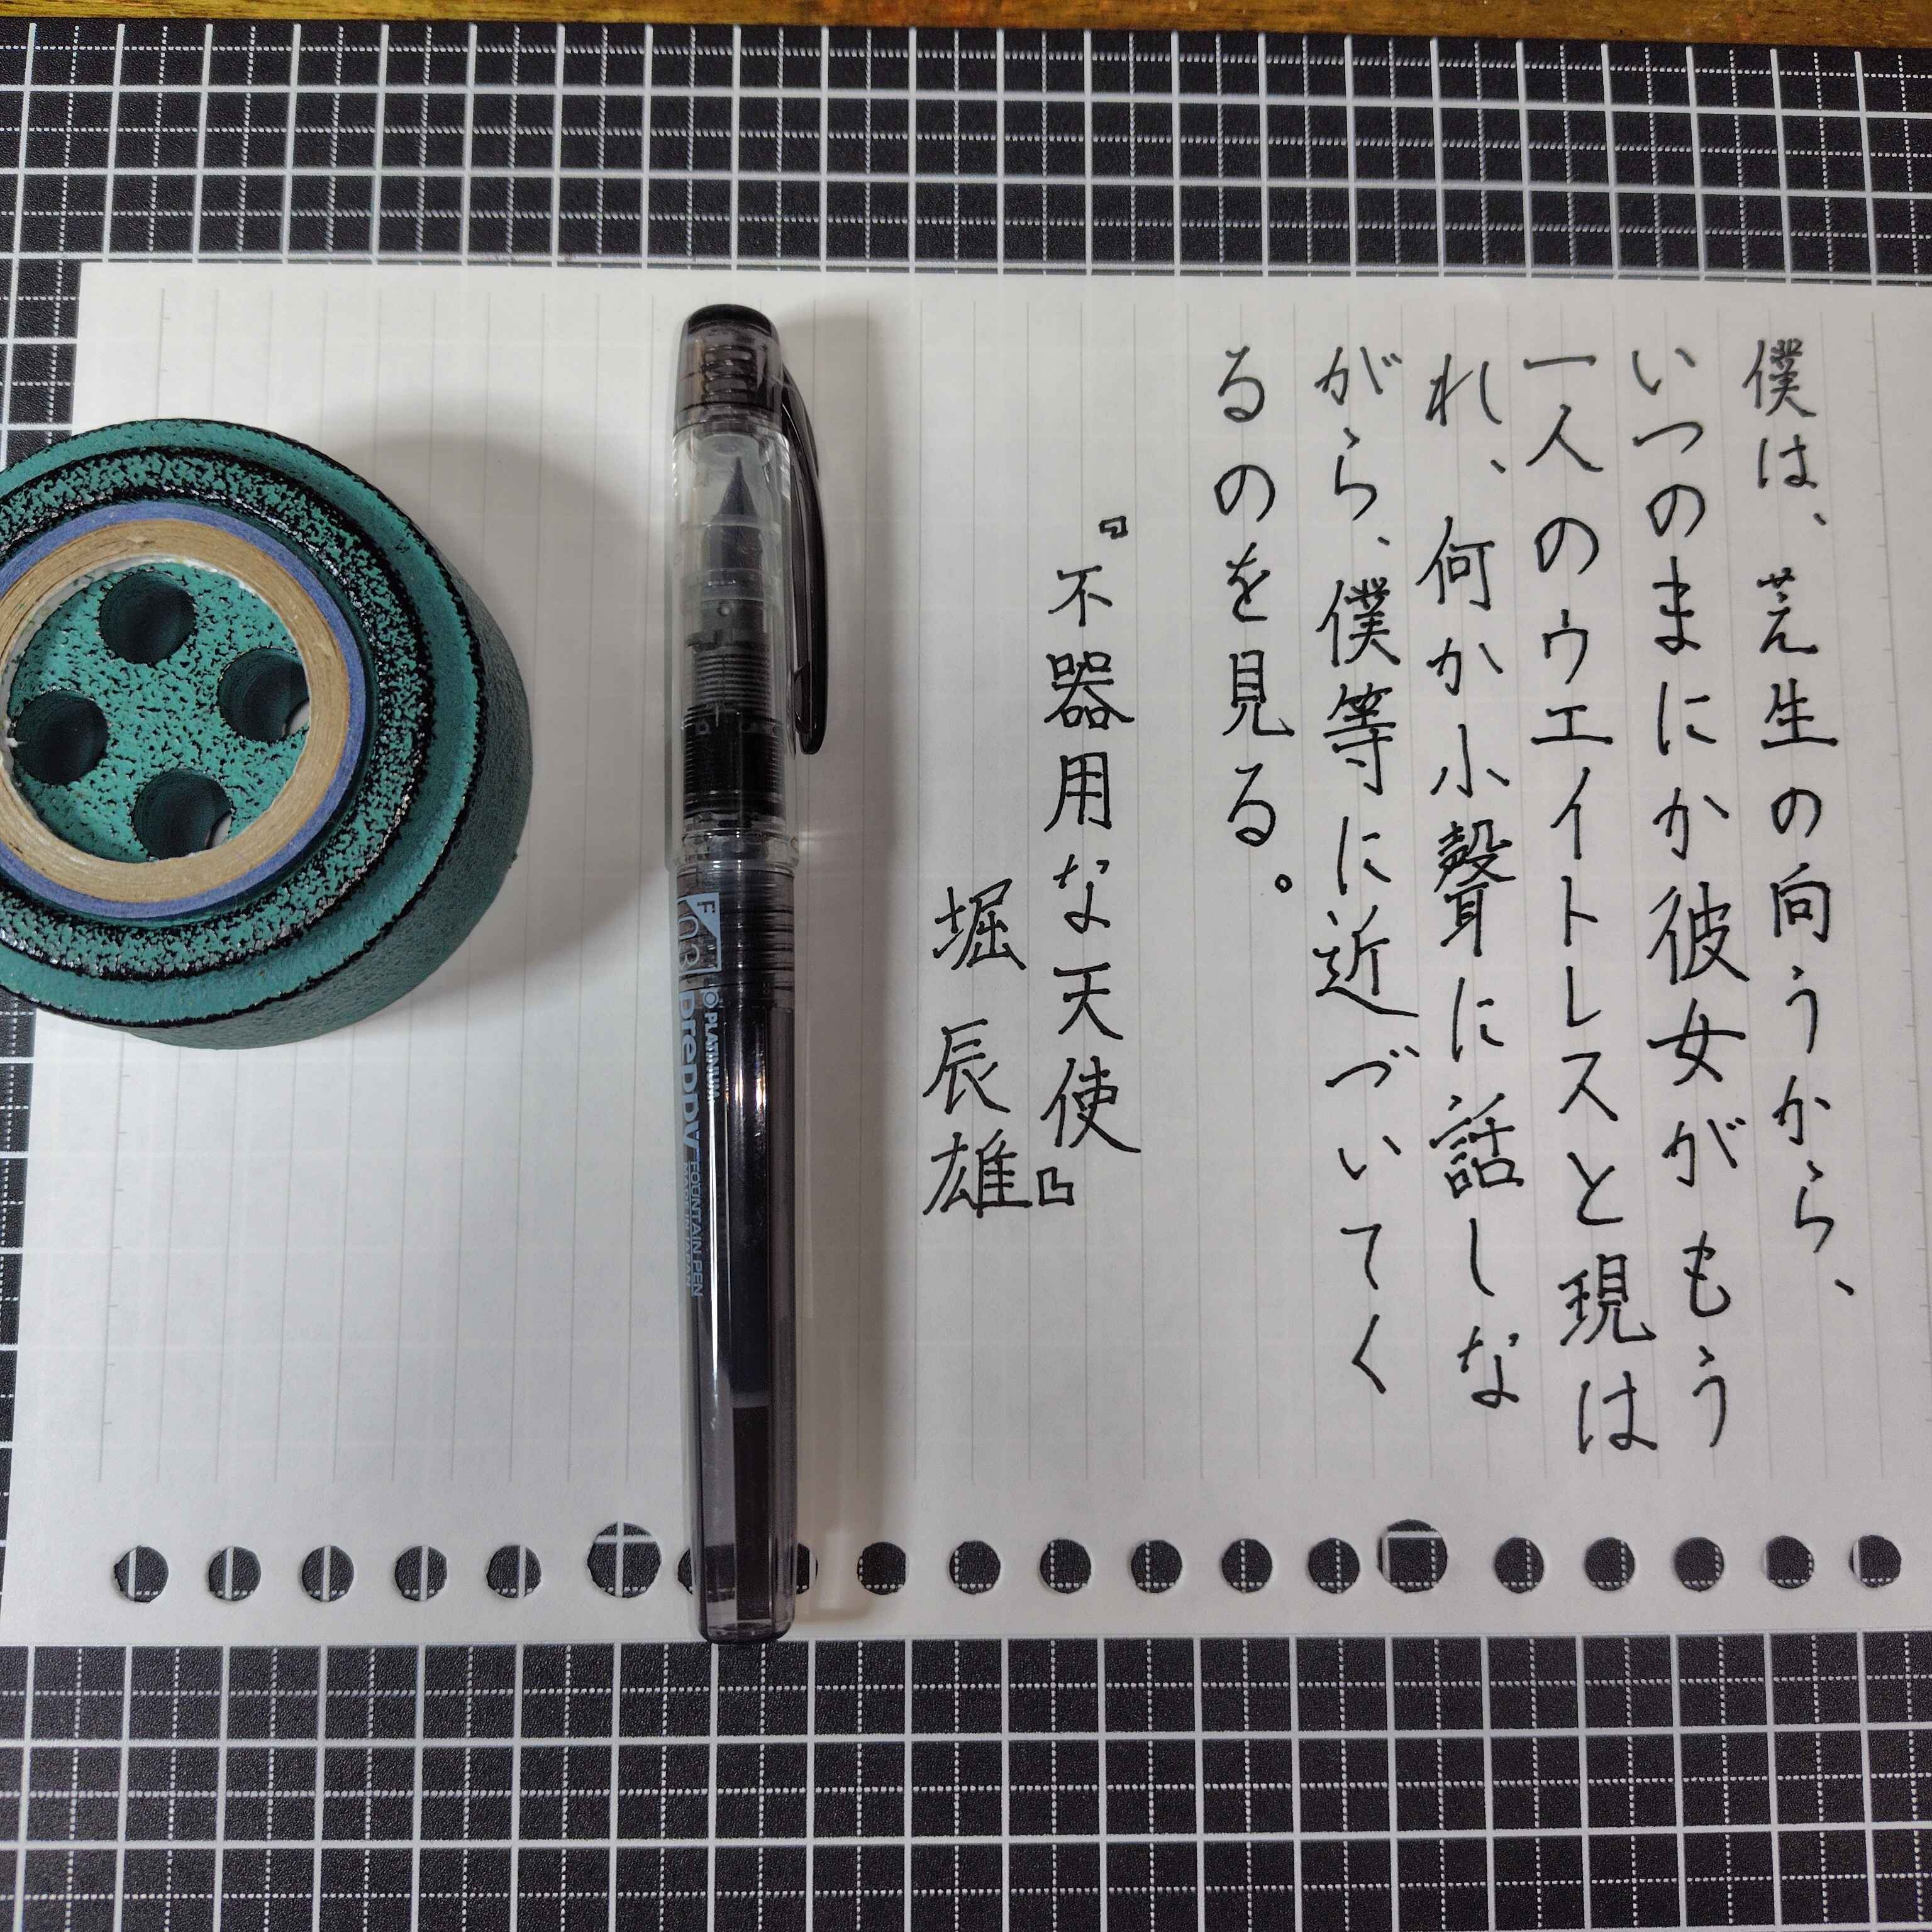 僕は、芝生の向うから、
いつのまにか彼女がもう
一人のウエイトレスと現は
れ、何か小聲に話しな
がら、僕等に近づいてく
るのを見る。
『不器用な天使』
堀辰雄
F 03
PLATINUM
Preppy FOUNTAIN PEN
MADE IN JAPAN